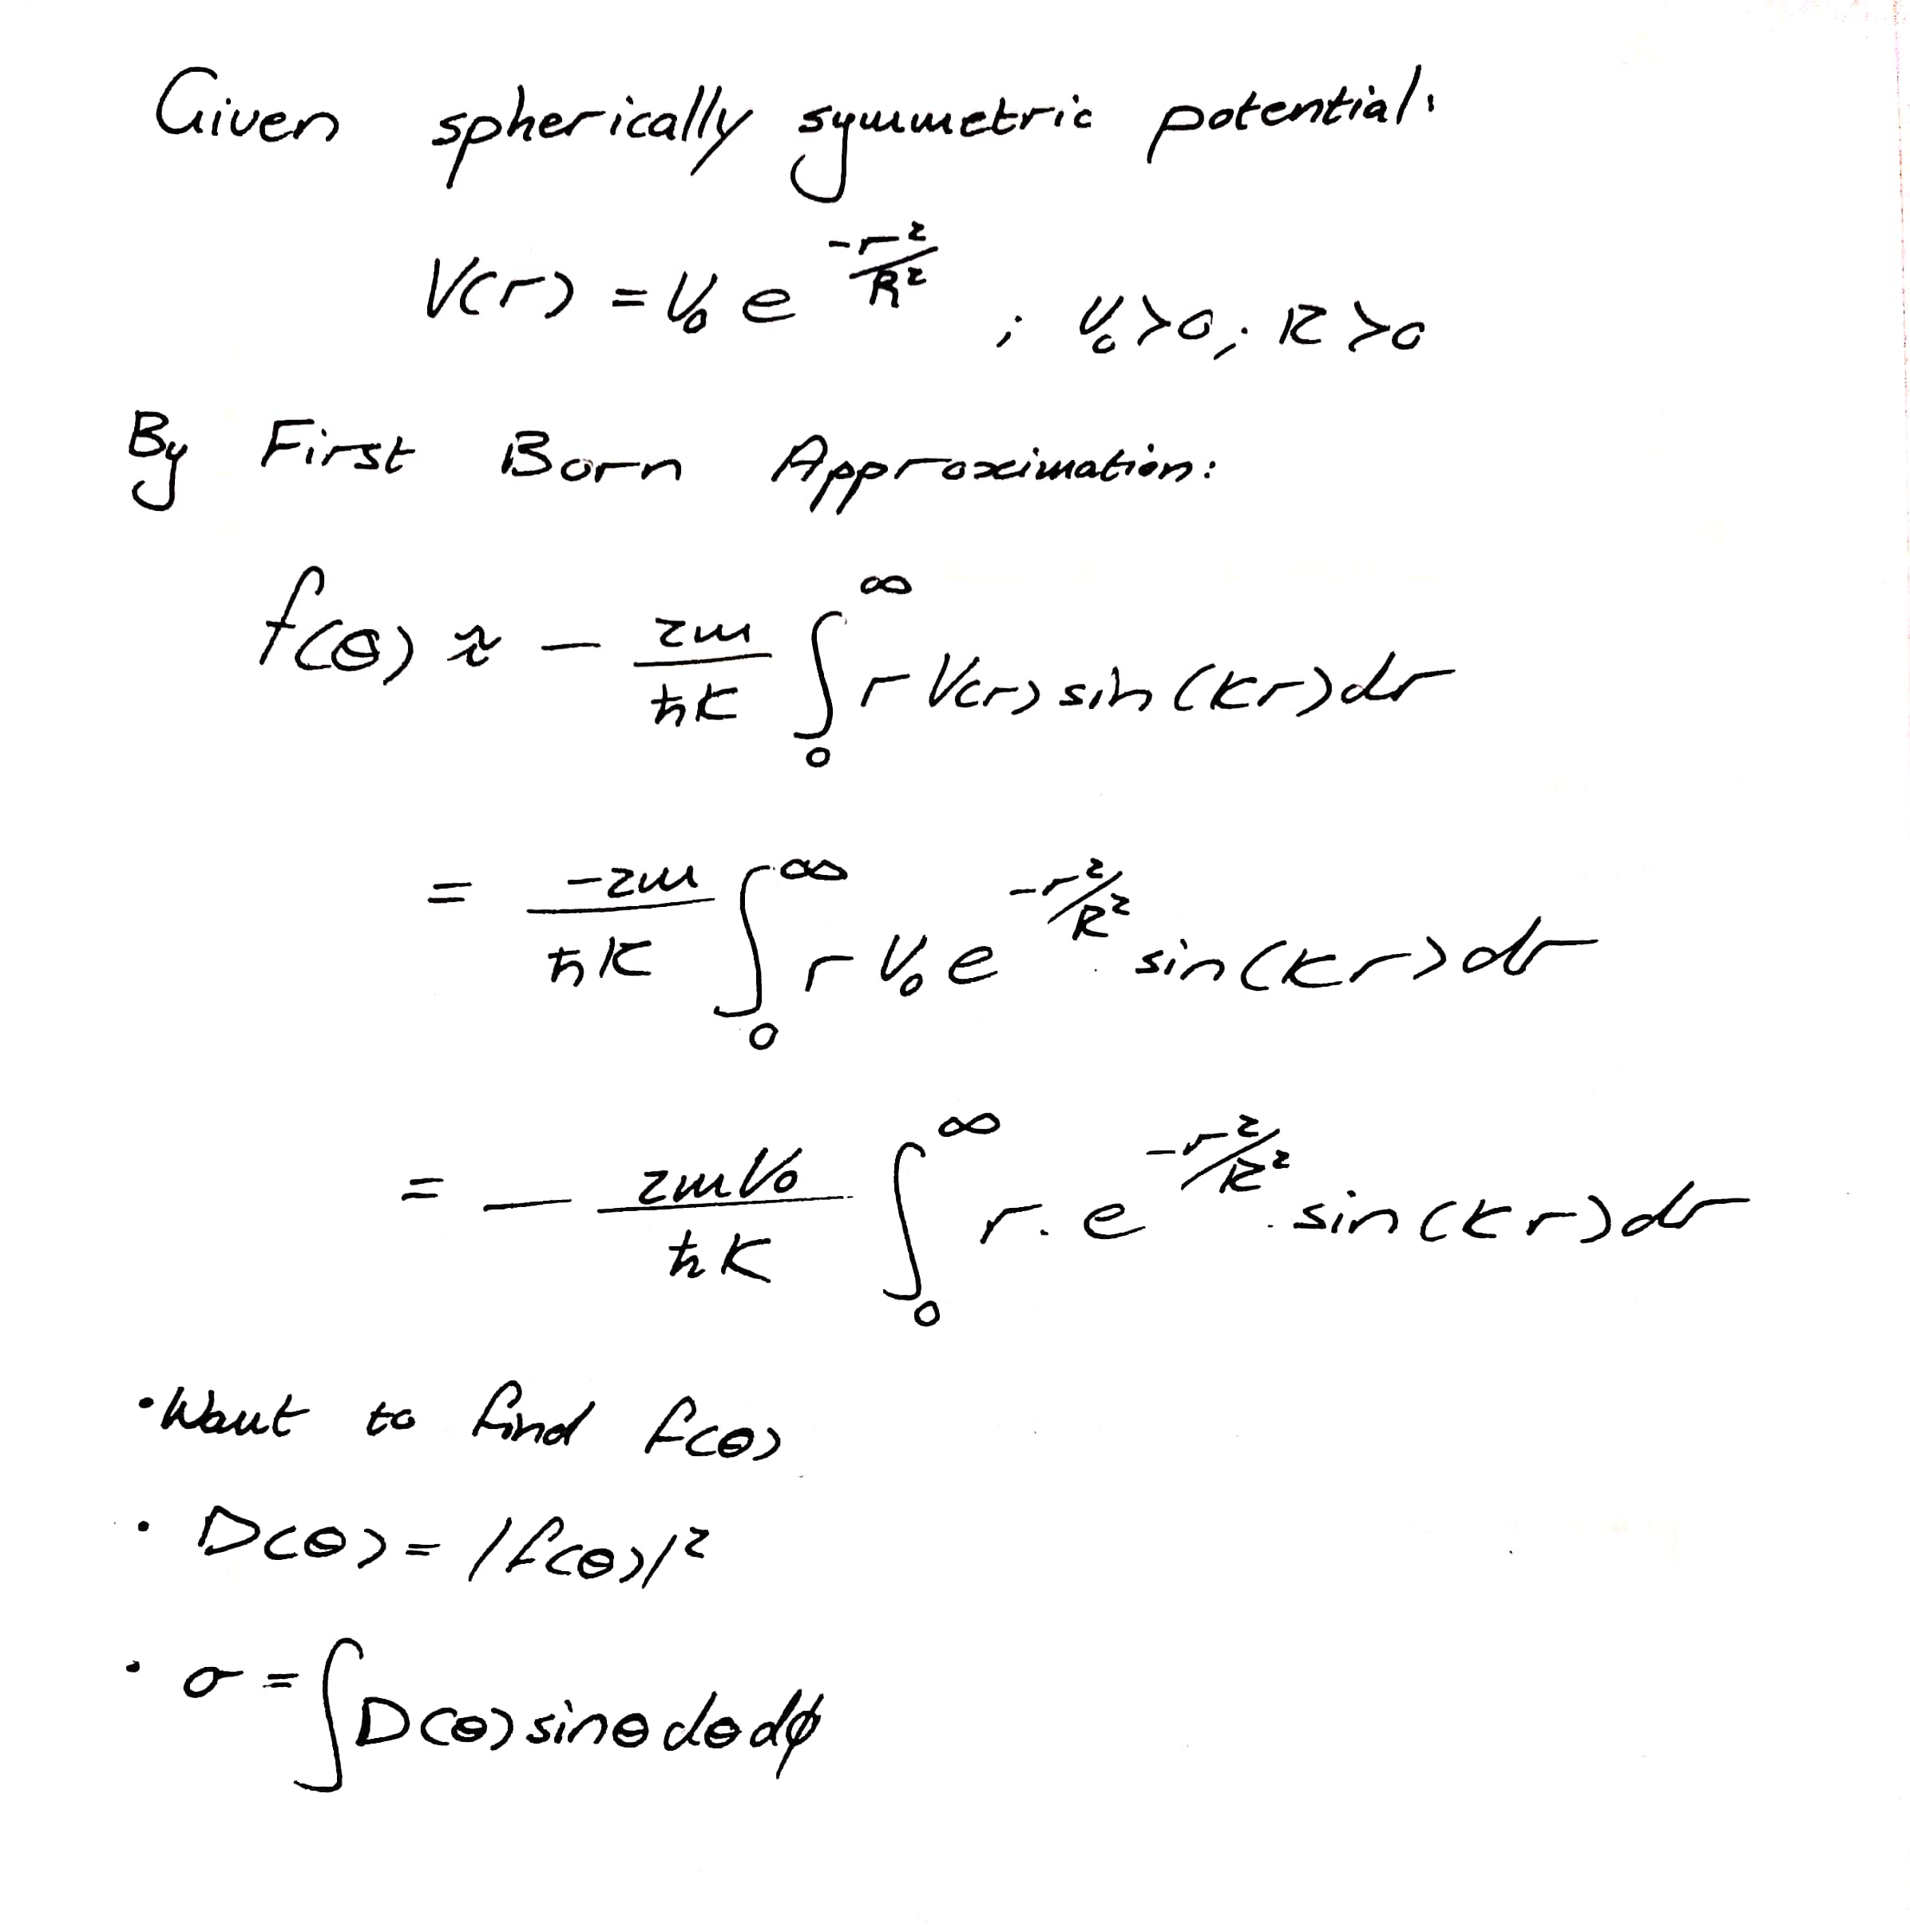 Given spherically symmetric potential:
V(r) = V₀ e^(-r²/R²) ; V₀>0; R>0
By First Born Approximation:
f(θ) ≈ - 2m/ħk ∫₀^∞ r V(r) sin(kr)dr
= -2m/ħk ∫₀^∞ r V₀ e^(-r²/R²) . sin(kr)dr
= - 2mV₀/ħk ∫₀^∞ r. e^(-r²/R²) . sin(kr)dr
• Want to find f(θ)
• D(θ) = |f(θ)|²
• σ = ∫D(θ) sinθ dθ dφ